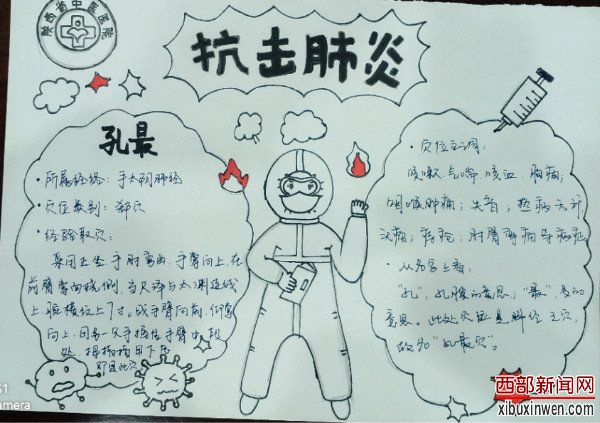 陕西省中医医院
抗击肺炎
孔最
·所属经络：手太阴肺经
·穴位类别：郄穴
·经验取穴：
要团正坐，手肘弯曲，手掌向上，在
前臂掌面桡侧，当尺泽与太渊连线
上腕横纹上7寸，或手臂向前，仰掌
向上，用另一只手握住手臂中段
处，拇指指甲下压
即是此穴
·穴位主治：
咳嗽、气喘、咳血、胸痛；
咽喉肿痛；失音；热病无汗
头痛；痔疮；肘臂
·从名字上看，
“孔”，孔隙的意思；“最”，多的
意思。此处穴
故名“孔最穴”。
S1
amera
西部新闻网
xibuxinwen.com